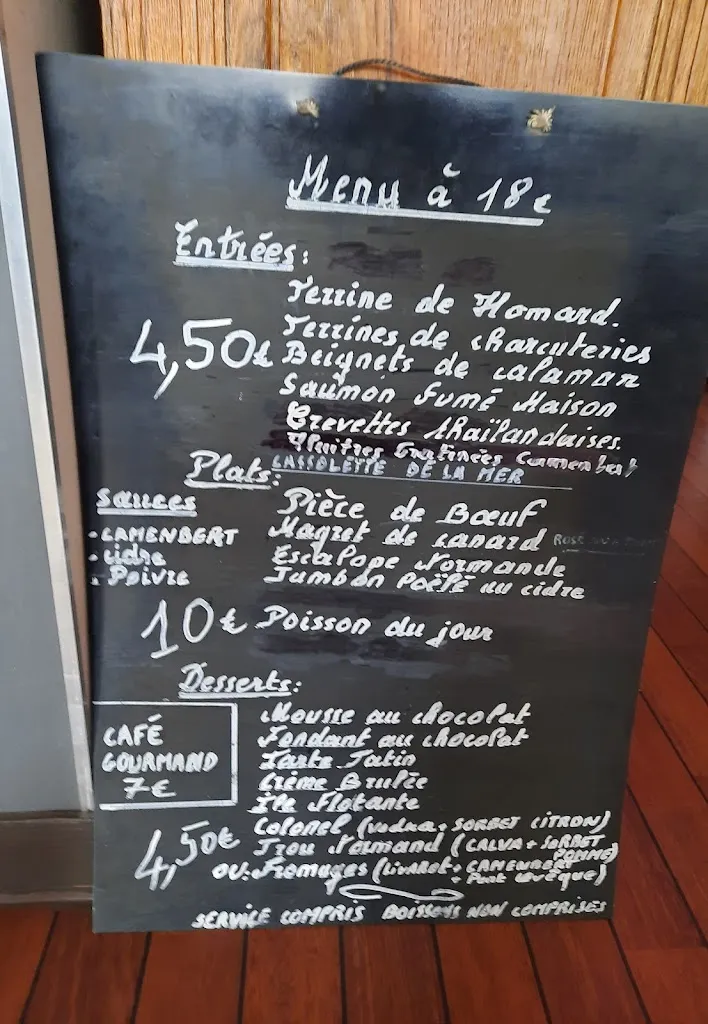 Menu à 18€
Entrées:
Terrine de Homard.
Terrines de charcuteries
4,50€
Beignets de calamar
Saumon Fumé Maison
Crevettes thaïlandaises.
Huitres Gratinées Camembert
CASSOLETTE DE LA MER
Plats:
Sauces
• CAMENBERT
• Cidre
• Poivre
Pièce de Bœuf
Magret de canard ROSÉ
Escalope Normande
Jambon Poêlé au cidre
10€
Poisson du jour
Desserts:
CAFÉ
GOURMAND
7€
Mousse au chocolat
Fondant au chocolat
Tarte Tatin
Crème Brulée
Ile Flotante
4,50€
Colonel (vodka + SORBET CITRON)
Trou Normand (CALVA + SORBET
POMME)
ou: Fromages (LIVAROT + CAMEMBERT
+ Pont Levêque)
SERVICE COMPRIS BOISSONS NON COMPRISES